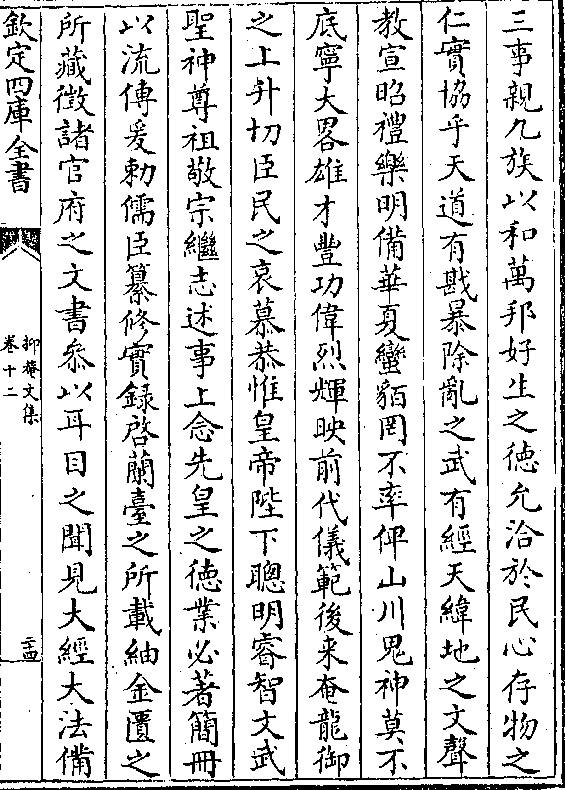 三事親九族以和萬邦好生之徳允洽於民心存物之
仁實協乎天道有戡暴除亂之武有經天緯地之文聲
教宣昭禮樂明備華夏蠻貊罔不率俾山川鬼神莫不
底寧大畧雄才豐功偉烈輝映前代儀範後来奄龍御
之上升切臣民之哀慕恭惟皇帝陛下聰明睿智文武
聖神尊祖敬宗繼志述事上念先皇之徳業必著簡冊
以流傳爰勅儒臣纂修實録啓蘭臺之所載紬金匱之
所藏徴諸官府之文書叅以耳目之聞見大經大法備
欽定四庫全書
抑菴文集
卷十二
二十四